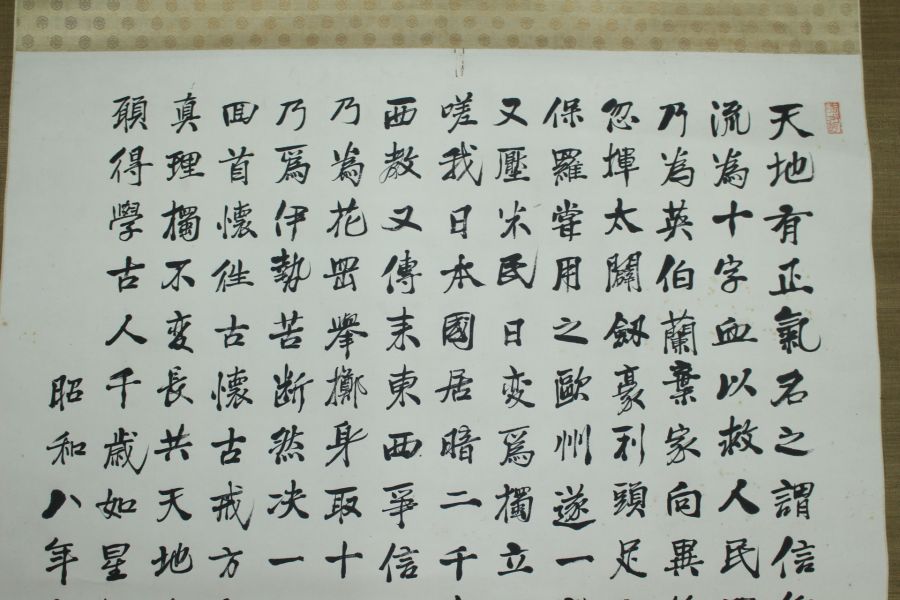 天地有正氣名之謂信
流為十字血以救人民
乃為英伯蘭棄家向異
忽揮太闢劔豪利頭足
保羅嘗用之歐州遂一
又壓米民日変為獨立
嗟我日本國居暗二千
西教又傳来東西爭信
乃為花岡舉擲身取十
乃爲伊勢苦断然决一
回首懐徃古懐古戒方
真理獨不変長共天地
願得學古人千歳如星
昭和八年